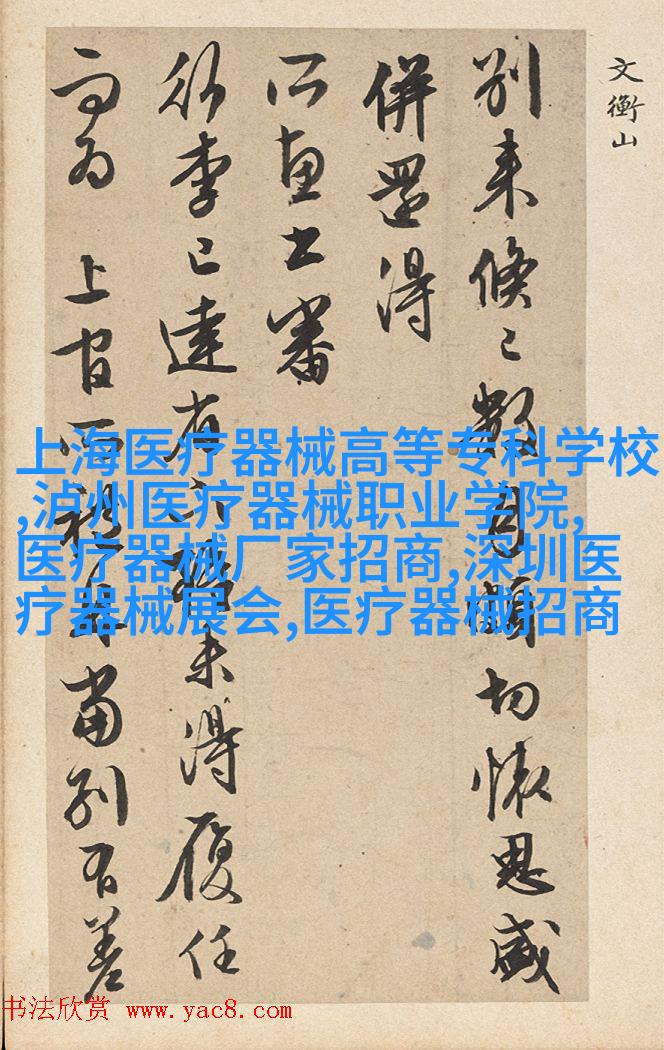 文衡山
别来倏〻数月
切怀思感
併還得
所惠书審
行李已達
未得履任
而为 上官
當别有差
上海医疗器械高等专科学校
,泸州医疗器械职业学院,
医疗器械厂家招商,深圳医
疗器械展会,医疗器械招商
书法欣赏 www.yac8.com